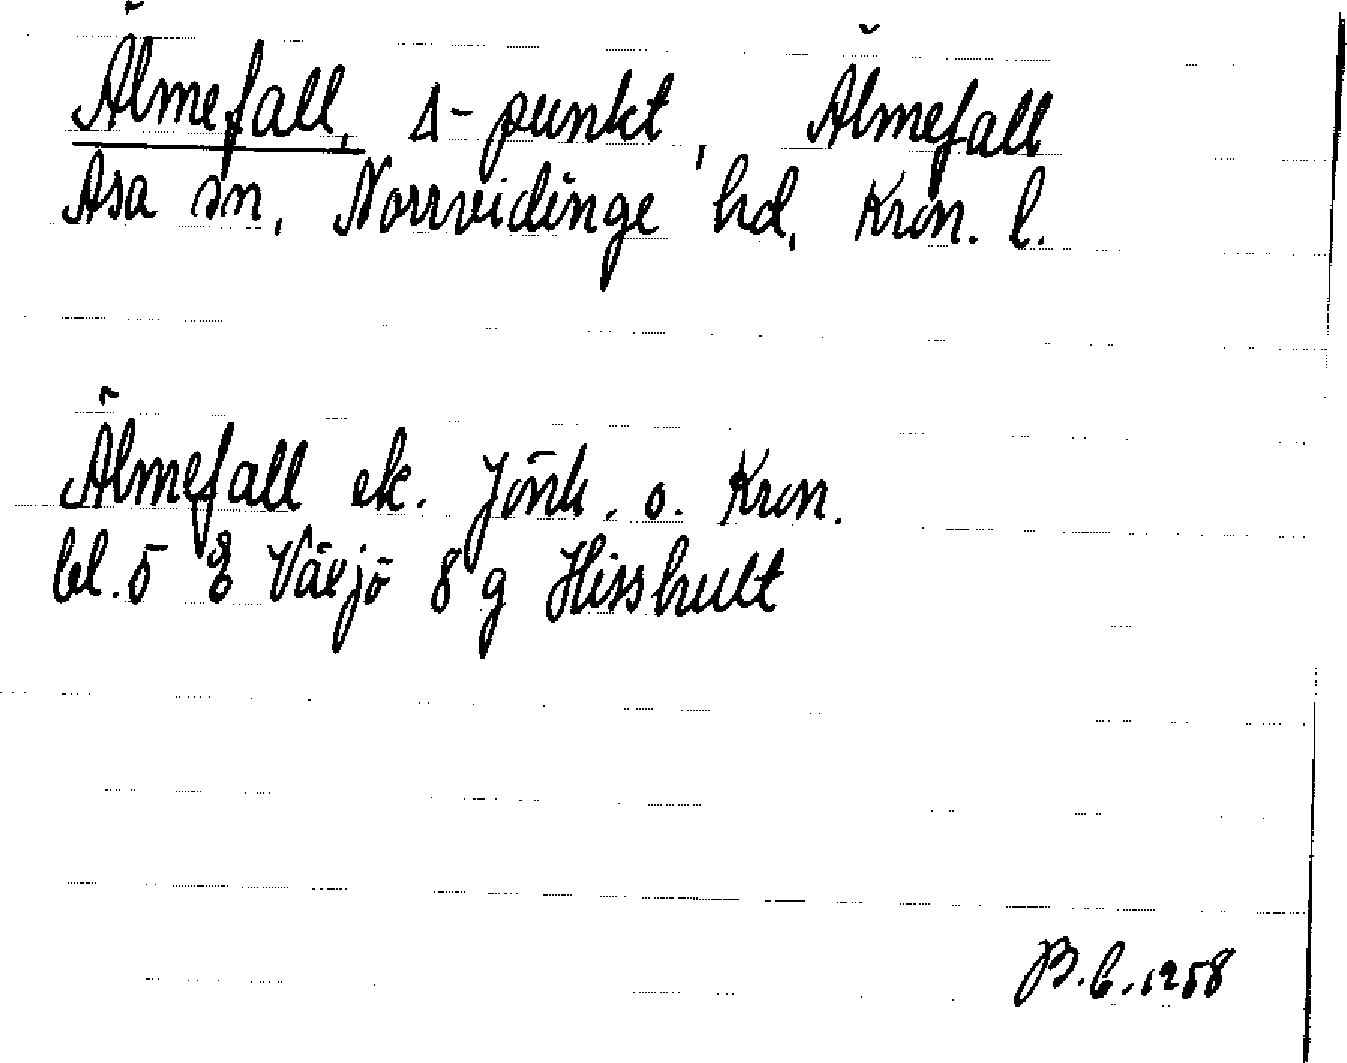 Älmefall, Δ-punkt, Älmefall
Asa sn, Norrvidinge hd, Kron. l.
Älmefall ek. Jönk. o. Kron.
bl. 5 E Växjö 8 g Hisshult
B.C. 1958